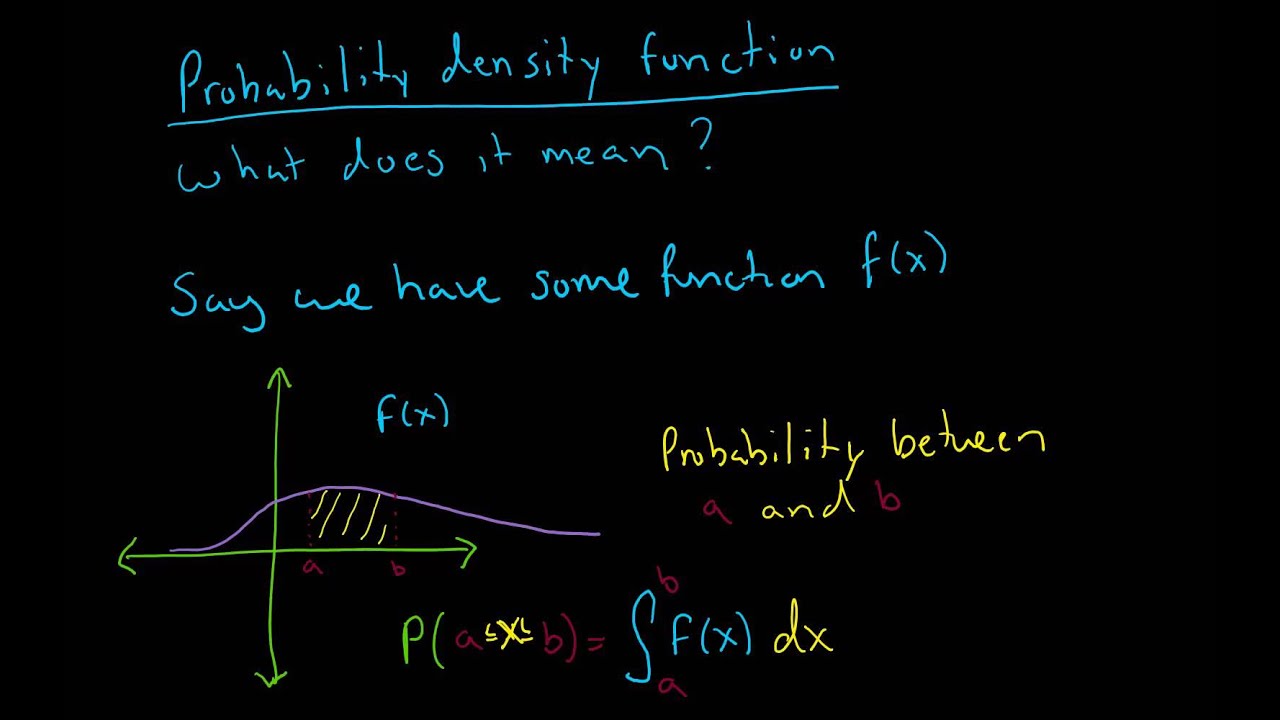 Probability density function
what does it mean?
Say we have some function f(x)
f(x)
Probability between
a and b
a b
P(a≤x≤b) = ∫ₐᵇ f(x) dx